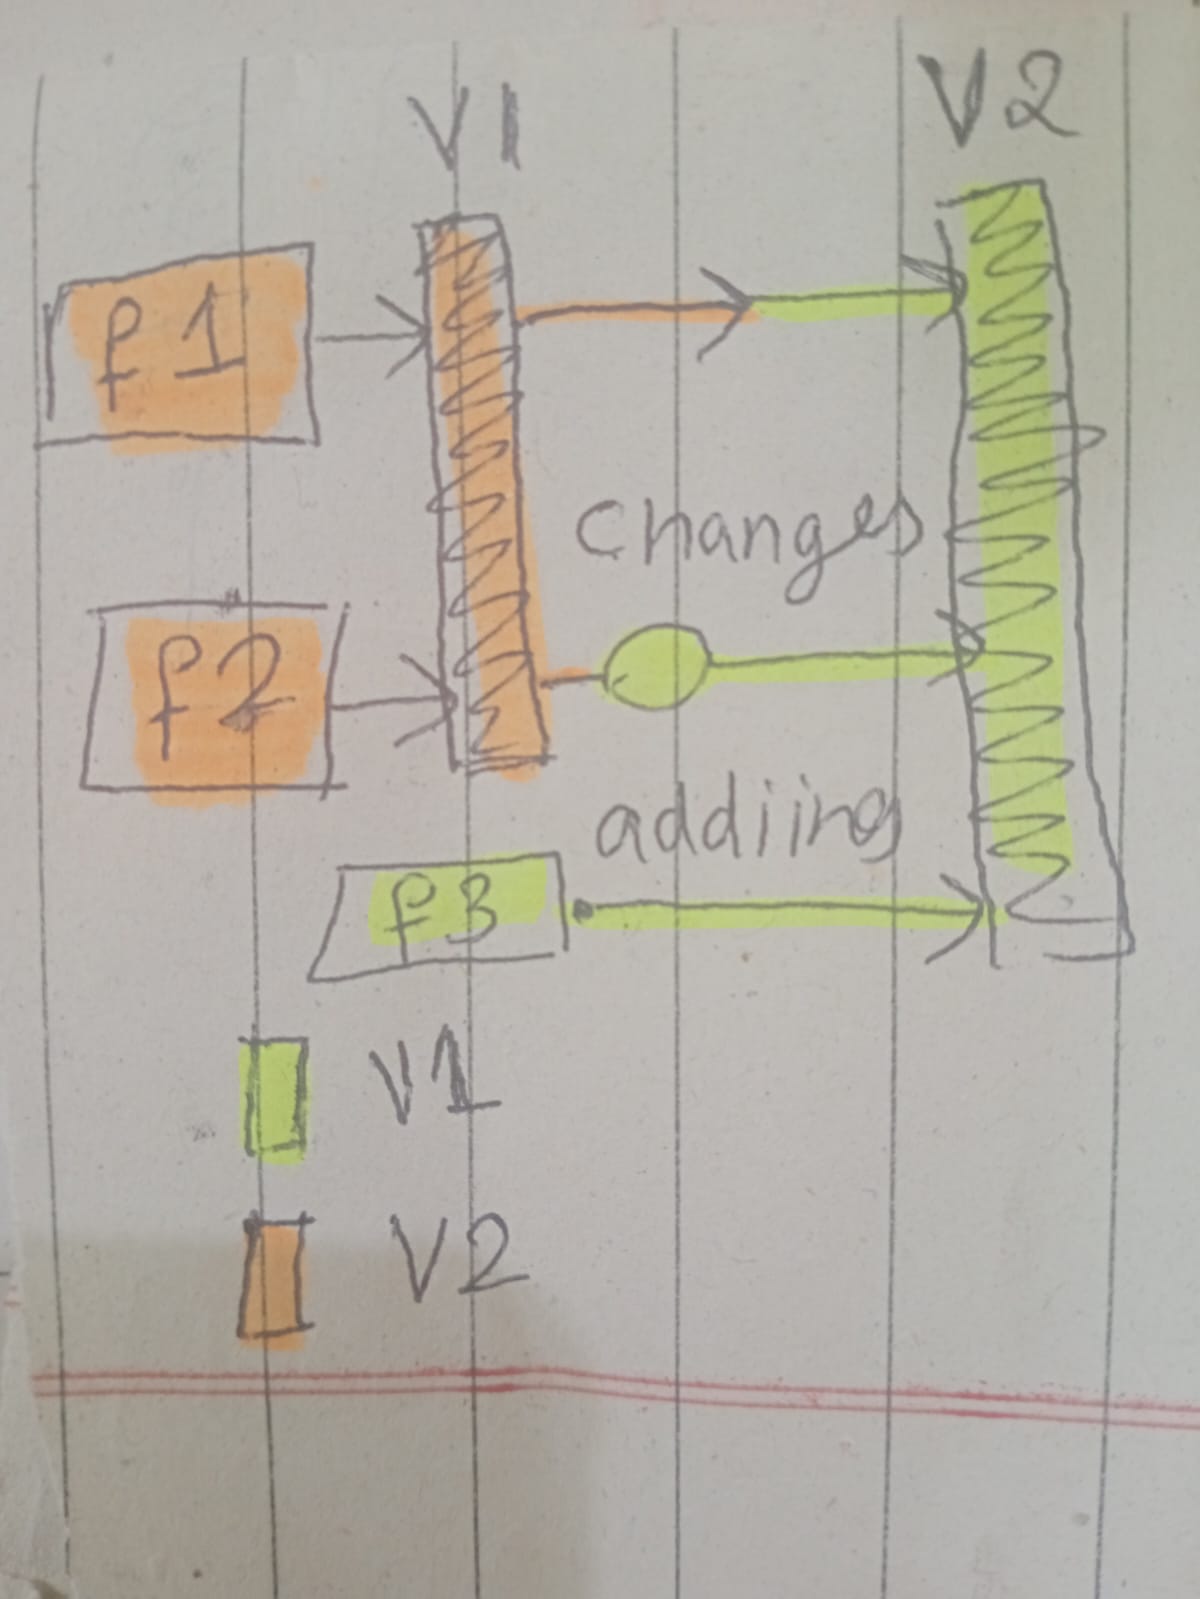 V1
V2
f1
changes
f2
addiing
f3
V1
V2